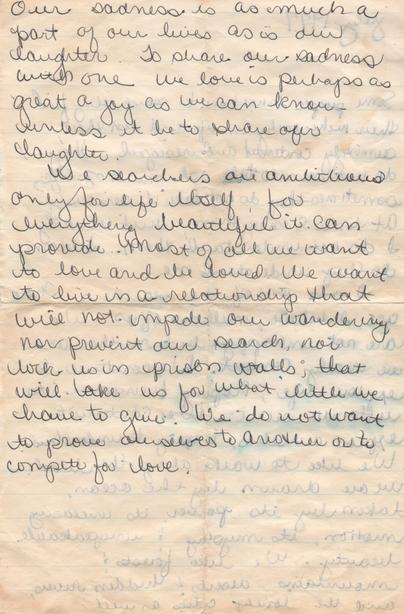 Our sadness is as much a
part of our lives as is our
laughter. To share our sadness
with one we love is perhaps as
great a joy as we can know -
unless it be to share our
laughter.
We searchers are ambitious
only for life itself, for
everything beautiful it can
provide. Most of all we want
to love and be loved. We want
to live in a relationship that
will not impede our wandering
nor prevent our search, nor
lock us in prison walls; that
will take us for what little we
have to give. We do not want
to prove ourselves to another or to
compete for love.